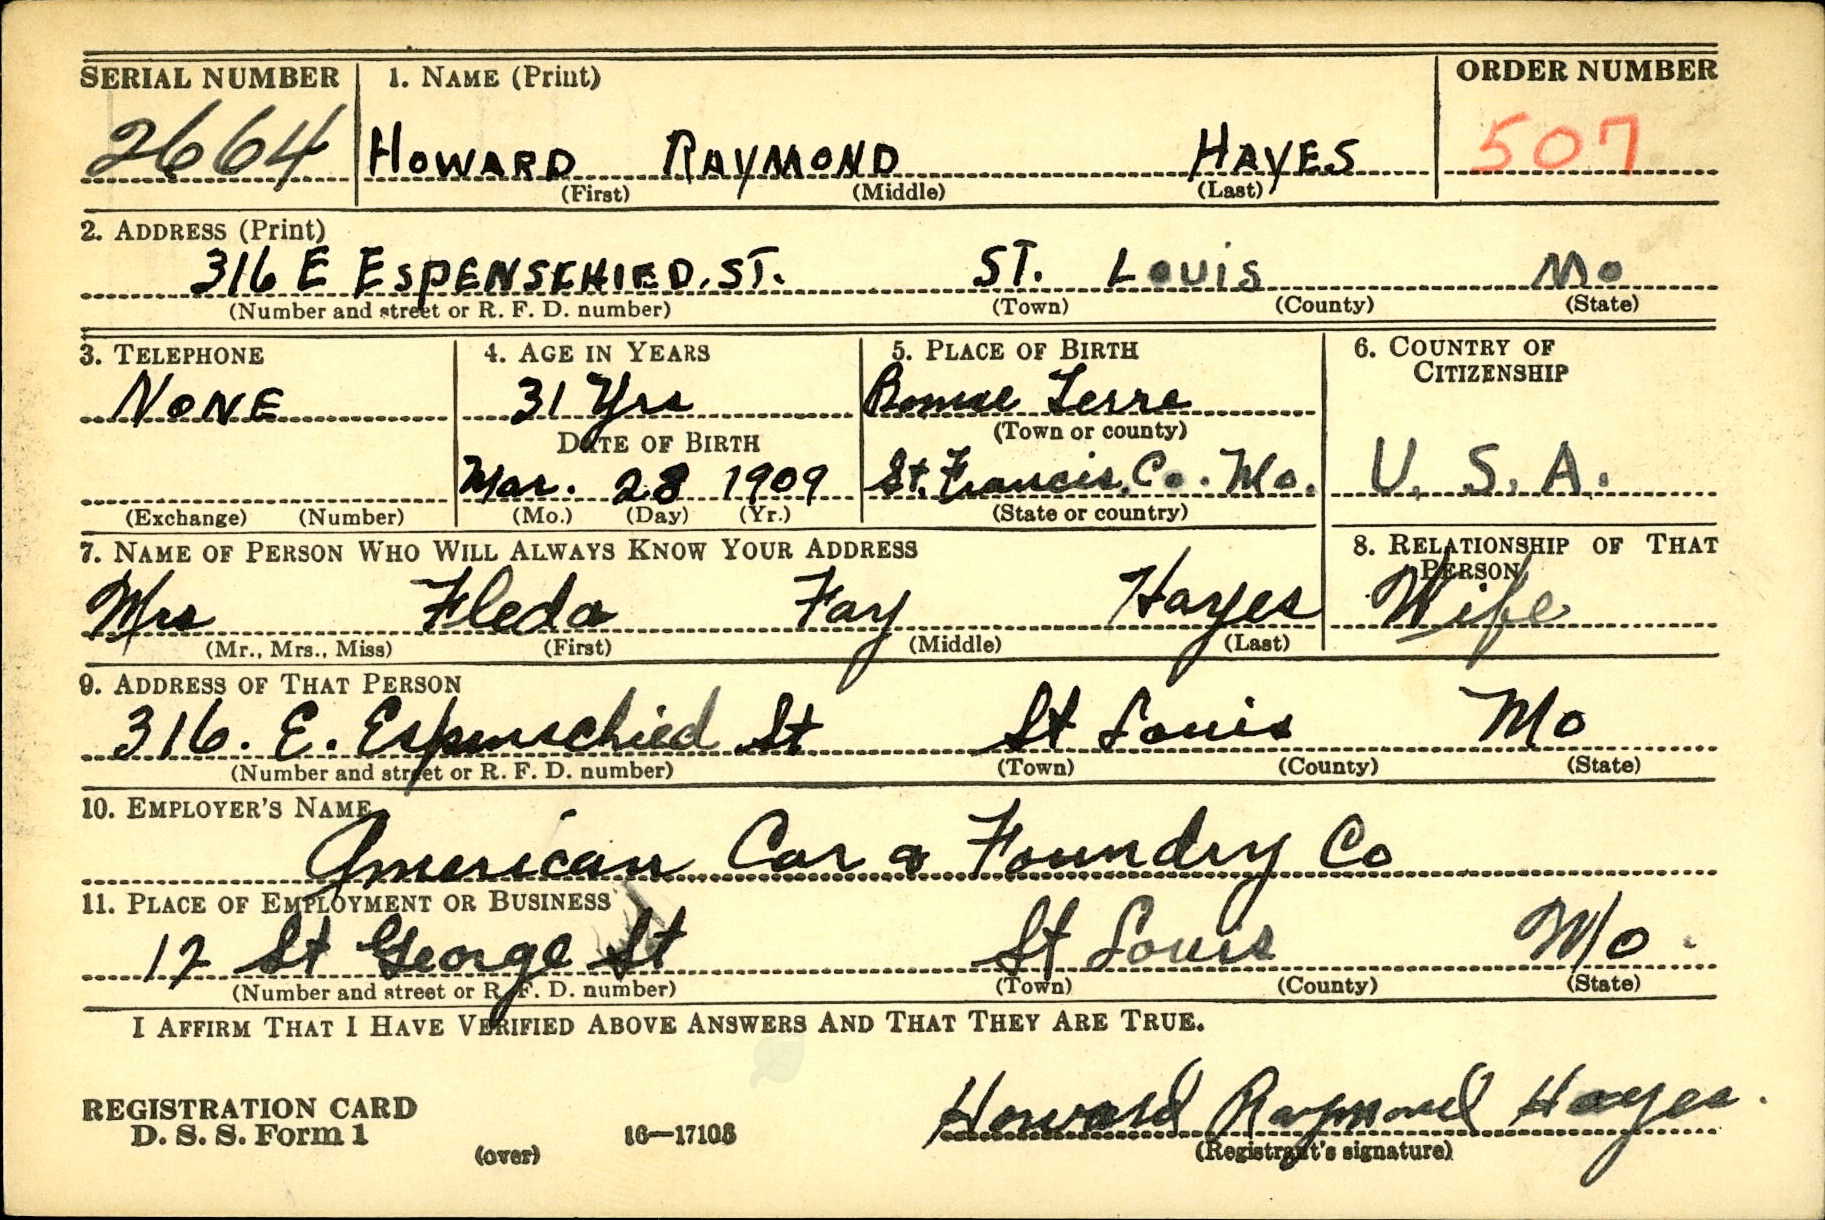 SERIAL NUMBER 1. NAME (Print) ORDER NUMBER
2664 HOWARD RAYMOND HAYES 507
(First) (Middle) (Last)
2. ADDRESS (Print)
316 E ESPENSCHIED. ST. ST. LOUIS Mo
(Number and street or R. F. D. number) (Town) (County) (State)
3. TELEPHONE 4. AGE IN YEARS 5. PLACE OF BIRTH 6. COUNTRY OF CITIZENSHIP
NONE 31 Yrs Bonne Terre
DATE OF BIRTH (Town or county)
Mar. 28 1909 St. Francis. Co. Mo. U. S. A.
(Exchange) (Number) (Mo.) (Day) (Yr.) (State or country)
7. NAME OF PERSON WHO WILL ALWAYS KNOW YOUR ADDRESS 8. RELATIONSHIP OF THAT PERSON
Mrs Fleda Fay Hayes Wife
(Mr., Mrs., Miss) (First) (Middle) (Last)
9. ADDRESS OF THAT PERSON
316. E. Espenschied St St Louis Mo
(Number and street or R. F. D. number) (Town) (County) (State)
10. EMPLOYER'S NAME
American Car & Foundry Co
11. PLACE OF EMPLOYMENT OR BUSINESS
12 St George St St Louis Mo.
(Number and street or R. F. D. number) (Town) (County) (State)
I AFFIRM THAT I HAVE VERIFIED ABOVE ANSWERS AND THAT THEY ARE TRUE.
REGISTRATION CARD
D. S. S. Form 1 16—17105 Howard Raymond Hayes.
(over) (Registrant's signature)